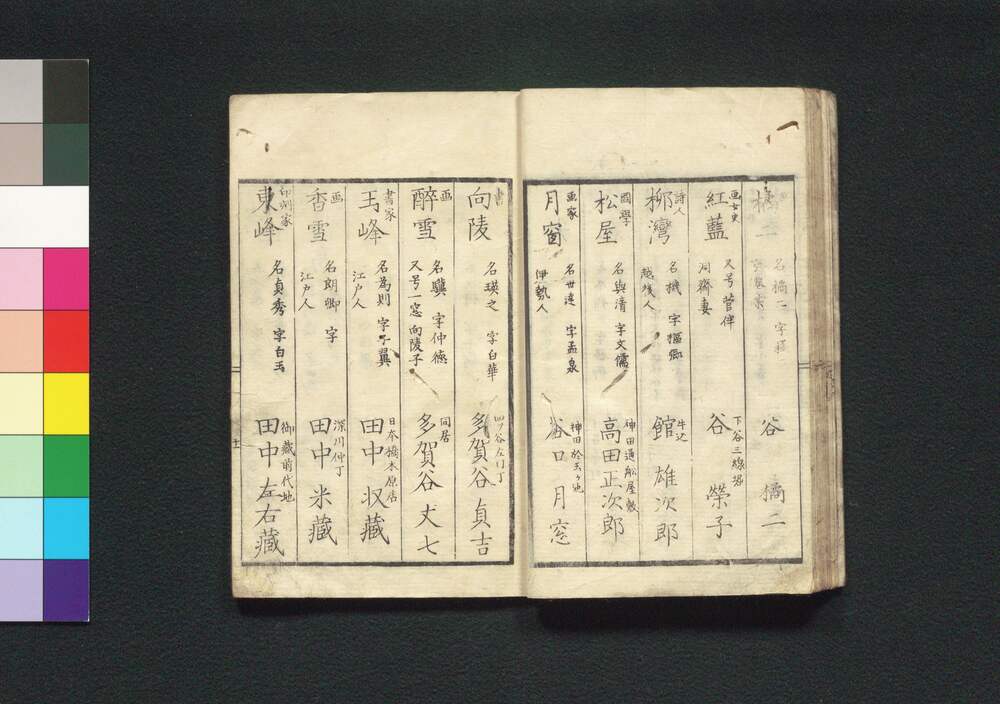 橘二
名橘二 字
谷 橘二
画女史
紅藍
又号 管伴
同齋妻
下谷三線堀
谷 榮子
詩人
柳灣
名機 字樞卿
越後人
牛込
館 雄次郎
國學
松屋
名與清 字文儒
神田通船屋敷
高田正次郎
画家
月窗
名世達 字孟泉
伊勢人
神田於玉ヶ池
谷口月窓
書
向陵
名瑛之 字白華
四ッ谷左門丁
多賀谷貞吉
画
醉雪
名驥 字仲德
又号一窓 向陵子
同居
多賀谷丈七
書家
玉峰
名為則 字子翼
江戸人
日本橋本原店
田中収藏
画
香雪
名朗卿 字
江戸人
深川仲丁
田中米藏
印刻家
東峰
名貞秀 字白玉
御藏前代地
田中左右藏